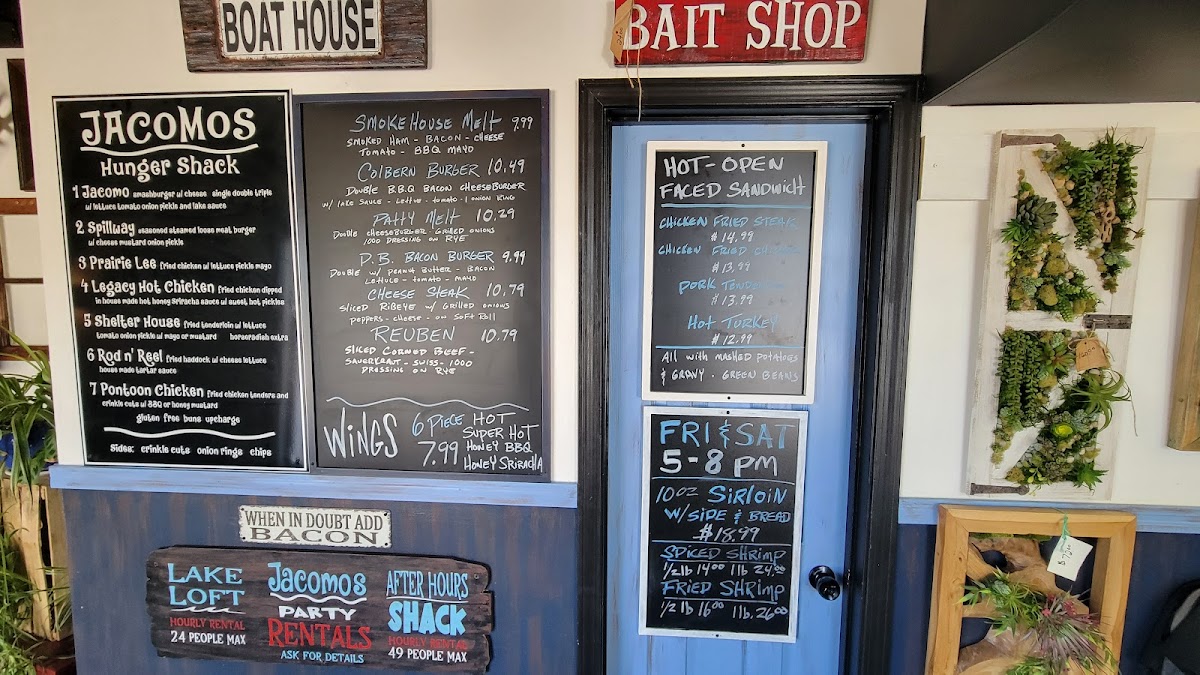 BOAT HOUSE
BAIT SHOP
JACOMOS
Hunger Shack
1 Jacomo smashburger w/ cheese single double triple
w/ lettuce tomato onion pickle and lake sauce
2 Spillway seasoned steamed loose meat burger
w/ cheese mustard onion pickle
3 Prairie Lee fried chicken w/ lettuce pickle mayo
4 Legacy Hot Chicken fried chicken dipped
in house made hot honey Sriracha sauce w/ sweet, hot pickles
5 Shelter House fried tenderloin w/ lettuce
tomato onion pickle w/ mayo or mustard horseradish extra
6 Rod n' Reel fried haddock w/ cheese lettuce
house made tartar sauce
7 Pontoon Chicken fried chicken tenders and
crinkle cuts w/ BBQ or honey mustard
gluten free buns upcharge
Sides: crinkle cuts onion rings chips
SMOKEHOUSE MELT 9.99
SMOKED HAM - BACON - CHEESE
TOMATO - BBQ MAYO
COLBERN BURGER 10.49
DOUBLE B.B.Q BACON CHEESEBURGER
W/ LAKE SAUCE - LETTUE - TOMATO - 1 ONION RING
PATTY MELT 10.29
DOUBLE CHEESEBURGER GRILLED ONIONS
1000 DRESSING ON RYE
P.B. BACON BURGER 9.99
DOUBLE W/ PEANUT BUTTER - BACON
LETTUCE - TOMATO - MAYO
CHEESE STEAK 10.79
SLICED RIBEYE W/ GRILLED ONIONS
PEPPERS - CHEESE - ON SOFT ROLL
REUBEN 10.79
SLICED CORNED BEEF -
SAUERKRAUT - SWISS - 1000
DRESSING ON RYE
WINGS 6 PIECE 7.99
HOT
SUPER HOT
HONEY BBQ
HONEY SRIRACHA
HOT-OPEN
FACED SANDWICH
CHICKEN FRIED STEAK
$14.99
CHICKEN FRIED CHICKEN
$13.99
PORK TENDERLOIN
$13.99
HOT TURKEY
$12.99
ALL WITH MASHED POTATOES
& GRAVY . GREEN BEANS
FRI & SAT
5-8 PM
10 OZ SIRLOIN
W/ SIDE & BREAD
$18.99
SPICED SHRIMP
1/2 lb 14.00 1 lb 24.00
FRIED SHRIMP
1/2 lb 16.00 1 lb. 26.00
WHEN IN DOUBT ADD
BACON
LAKE
LOFT
HOURLY RENTAL
24 PEOPLE MAX
Jacomos
PARTY
RENTALS
ASK FOR DETAILS
AFTER HOURS
SHACK
HOURLY RENTAL
49 PEOPLE MAX